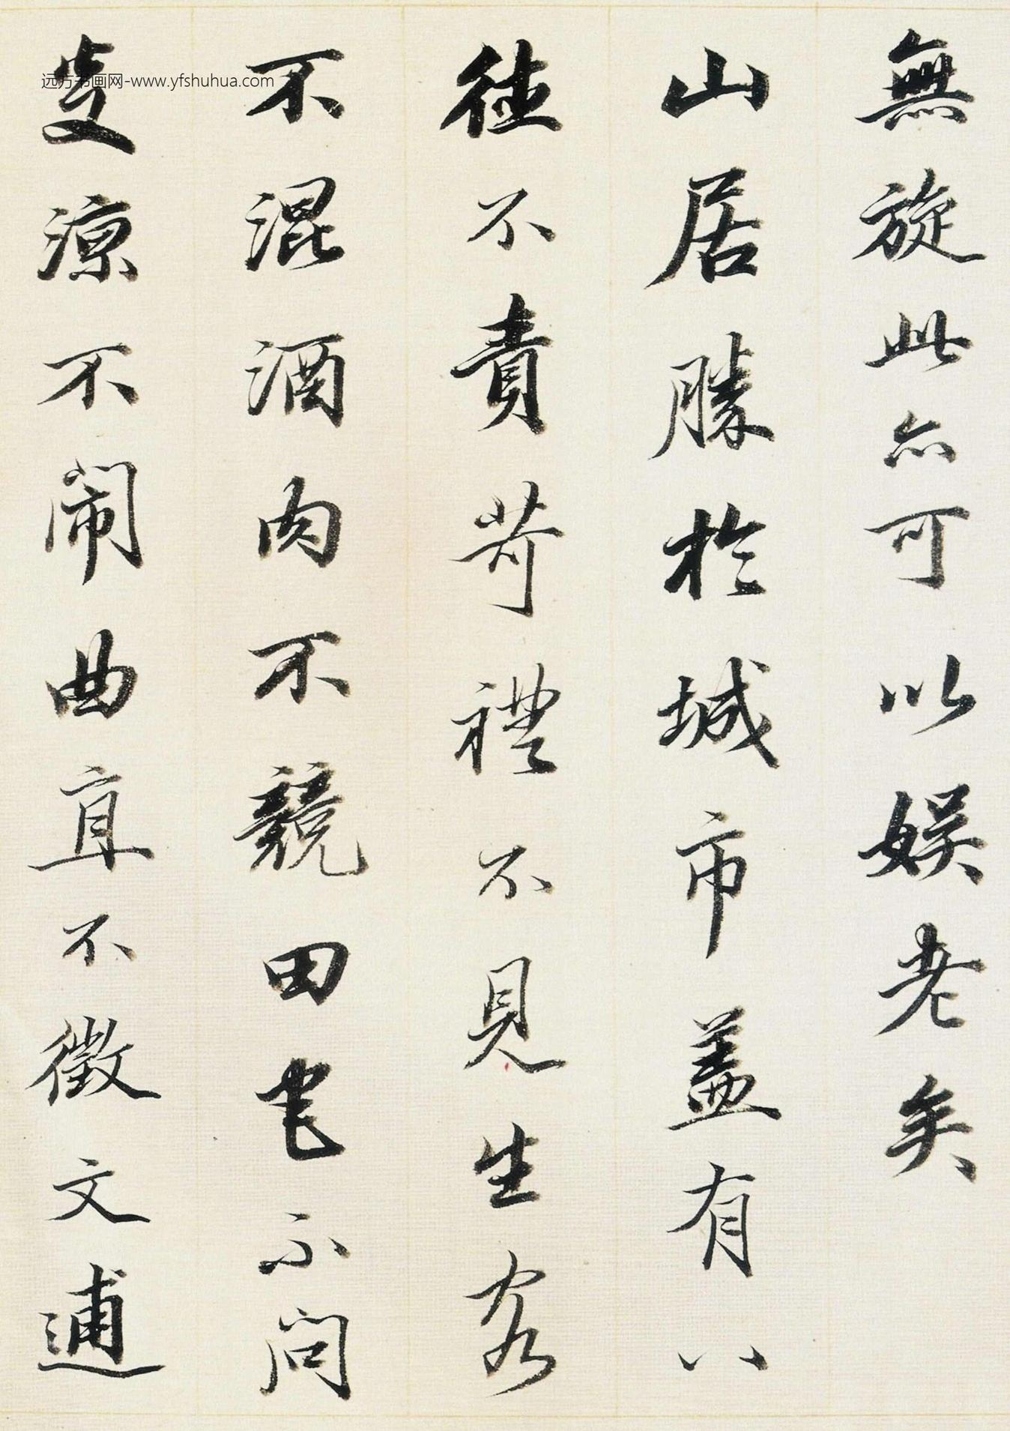 無旋此亦可以娱老矣
山居勝於城市盖有八
德不責苛禮不見生客
不混酒肉不競田宅不問
炎涼不闹曲直不徵文逋
远方书画网-www.yfshuhua.com